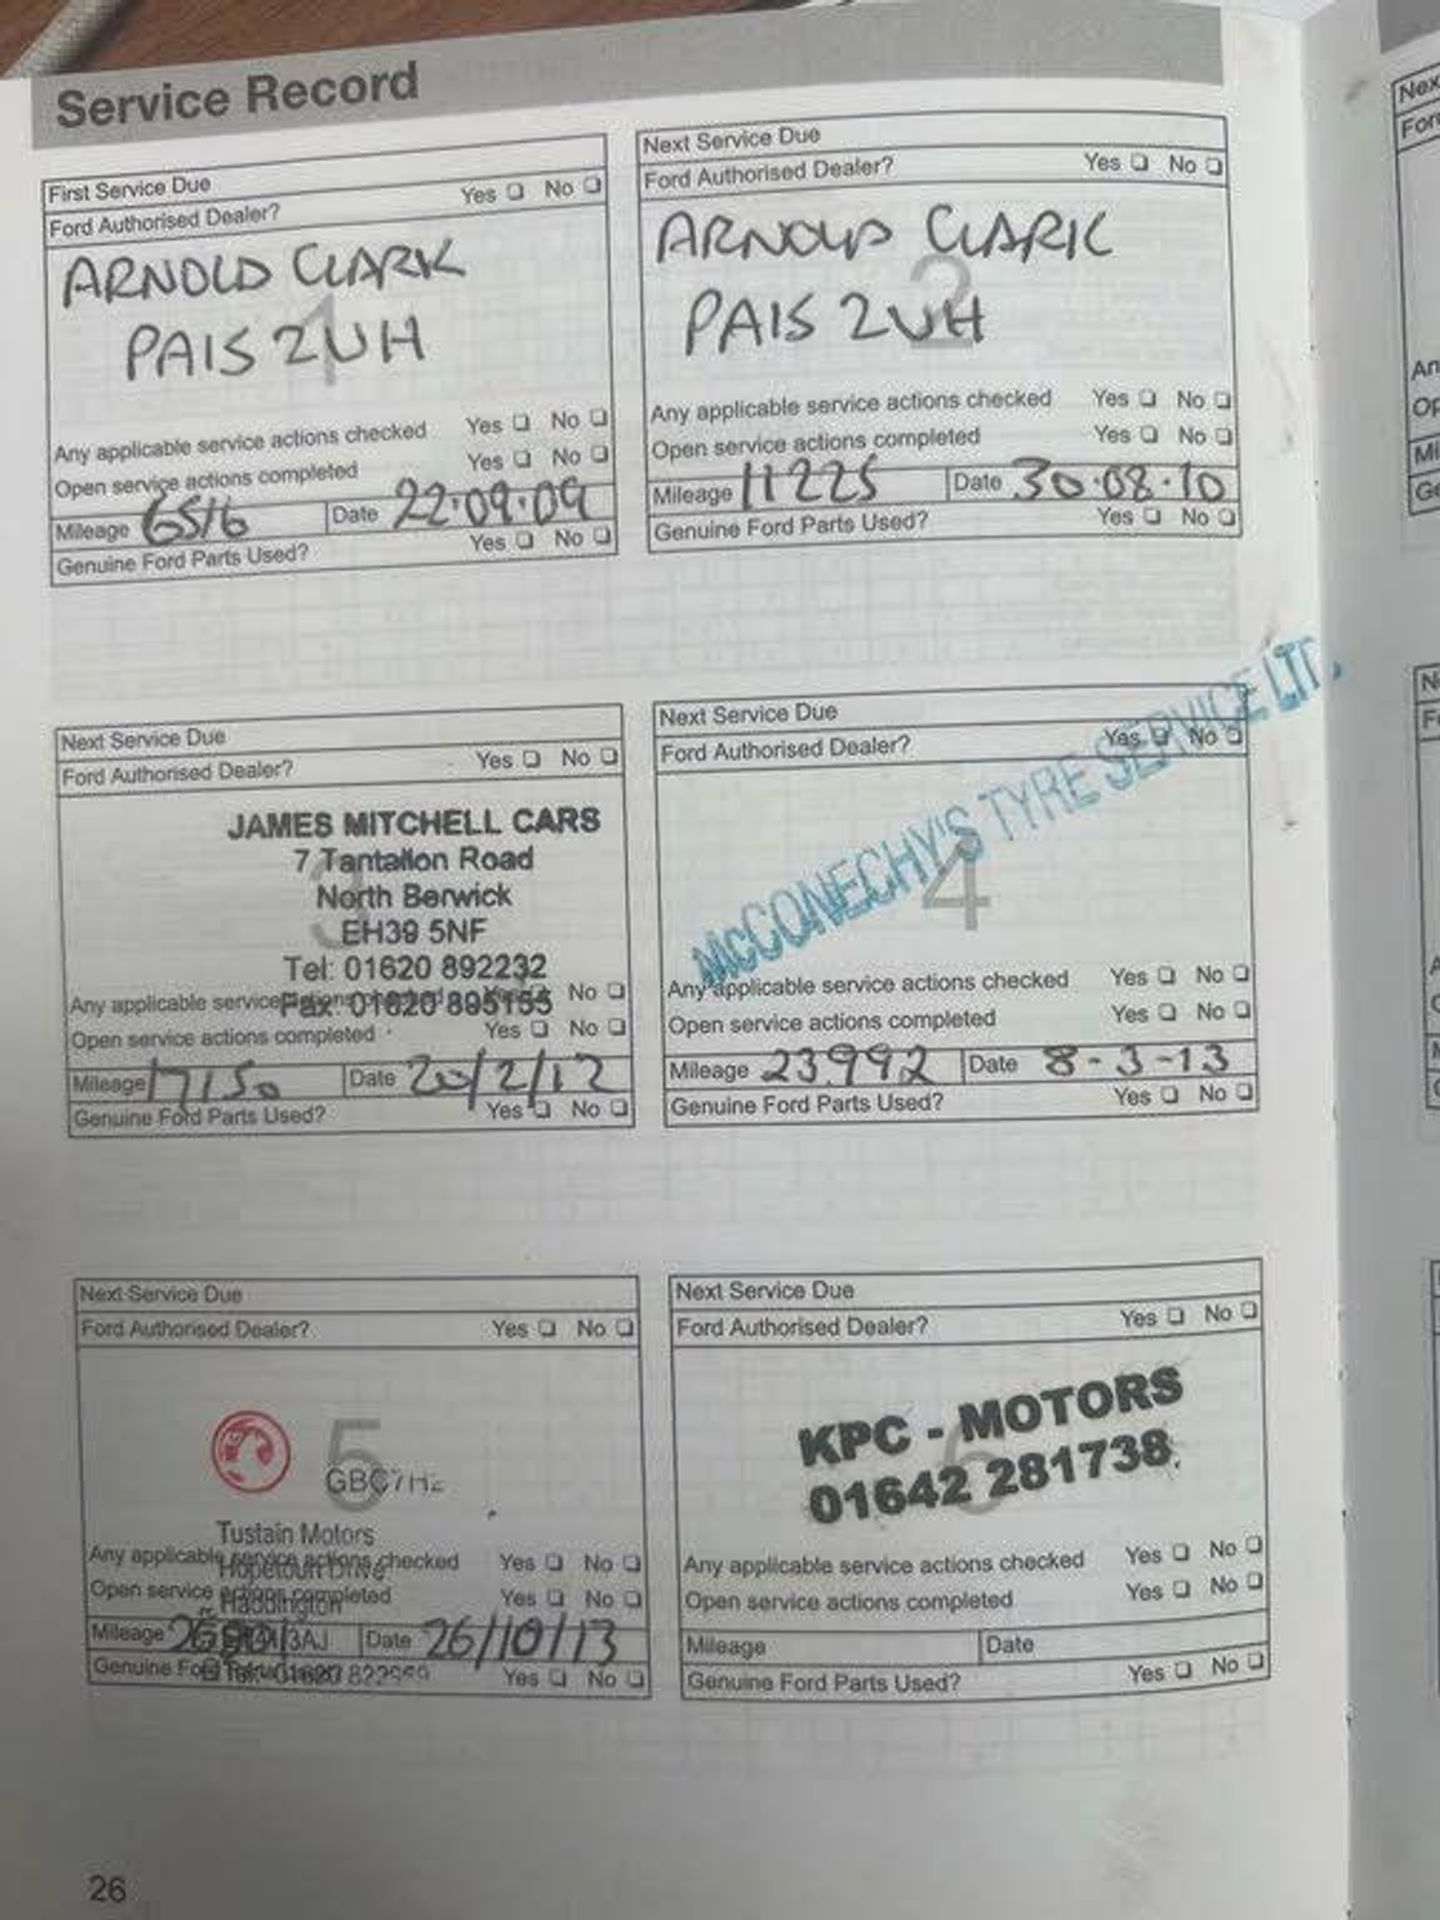 Service Record
First Service Due
Ford Authorised Dealer? Yes ❏ No ❏
ARNOLD CLARK
1
PA15 2UH
Any applicable service actions checked Yes ❏ No ❏
Open service actions completed Yes ❏ No ❏
Mileage 6516 Date 22.09.09
Genuine Ford Parts Used? Yes ❏ No ❏
Next Service Due
Ford Authorised Dealer? Yes ❏ No ❏
ARNOLD CLARK
2
PA15 2UH
Any applicable service actions checked Yes ❏ No ❏
Open service actions completed Yes ❏ No ❏
Mileage 11225 Date 30.08.10
Genuine Ford Parts Used? Yes ❏ No ❏
Next Service Due
Ford Authorised Dealer? Yes ❏ No ❏
JAMES MITCHELL CARS
7 Tantallon Road
North Berwick
3
EH39 5NF
Tel: 01620 892232
Fax: 01620 895155
Any applicable service actions checked Yes ❏ No ❏
Open service actions completed Yes ❏ No ❏
Mileage 17150 Date 20/2/12
Genuine Ford Parts Used? Yes ❏ No ❏
Next Service Due
Ford Authorised Dealer? Yes ❏ No ❏
McCONECHY'S TYRE SERVICE LTD.
4
Any applicable service actions checked Yes ❏ No ❏
Open service actions completed Yes ❏ No ❏
Mileage 23992 Date 8-3-13
Genuine Ford Parts Used? Yes ❏ No ❏
Next Service Due
Ford Authorised Dealer? Yes ❏ No ❏
5
Tustain Motors
Hopetoun Drive
Haddington
3AJ
Tel: 01620
Any applicable service actions checked Yes ❏ No ❏
Open service actions completed Yes ❏ No ❏
Mileage Date 26/10/13
Genuine Ford Parts Used? Yes ❏ No ❏
Next Service Due
Ford Authorised Dealer? Yes ❏ No ❏
KPC - MOTORS
6
01642 281738
Any applicable service actions checked Yes ❏ No ❏
Open service actions completed Yes ❏ No ❏
Mileage Date
Genuine Ford Parts Used? Yes ❏ No ❏
26